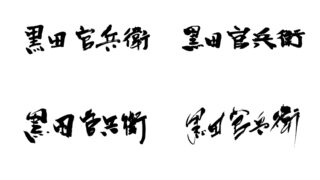 黒田官兵衛 黒田官兵衛
黒田官兵衛 黒田官兵衛